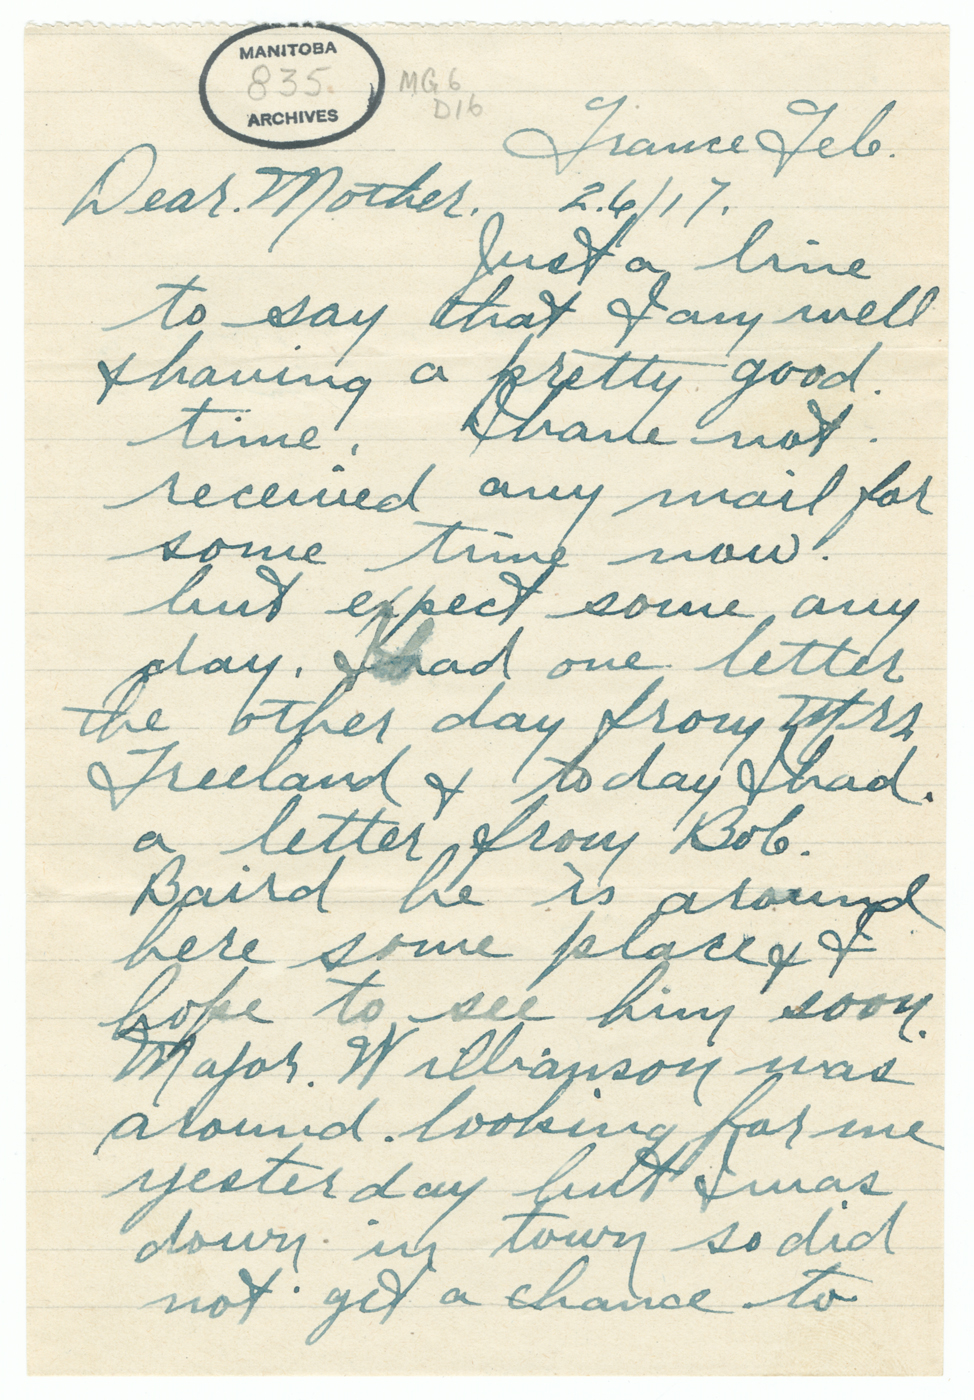 MANITOBA
835.
ARCHIVES
MG6
D16
France Feb.
Dear. Mother. 26/17.
Just a line
to say that I am well
& having a pretty good.
time. I have not.
received any mail for
some time now.
but expect some any
day. I had one letter
the other day from Mrs
Freeland & today I had.
a letter from Bob.
Baird he is around
here some place & I
hope to see him soon.
Major. Williamson was
around. looking for me
yesterday but I was
down in town so did
not get a chance to